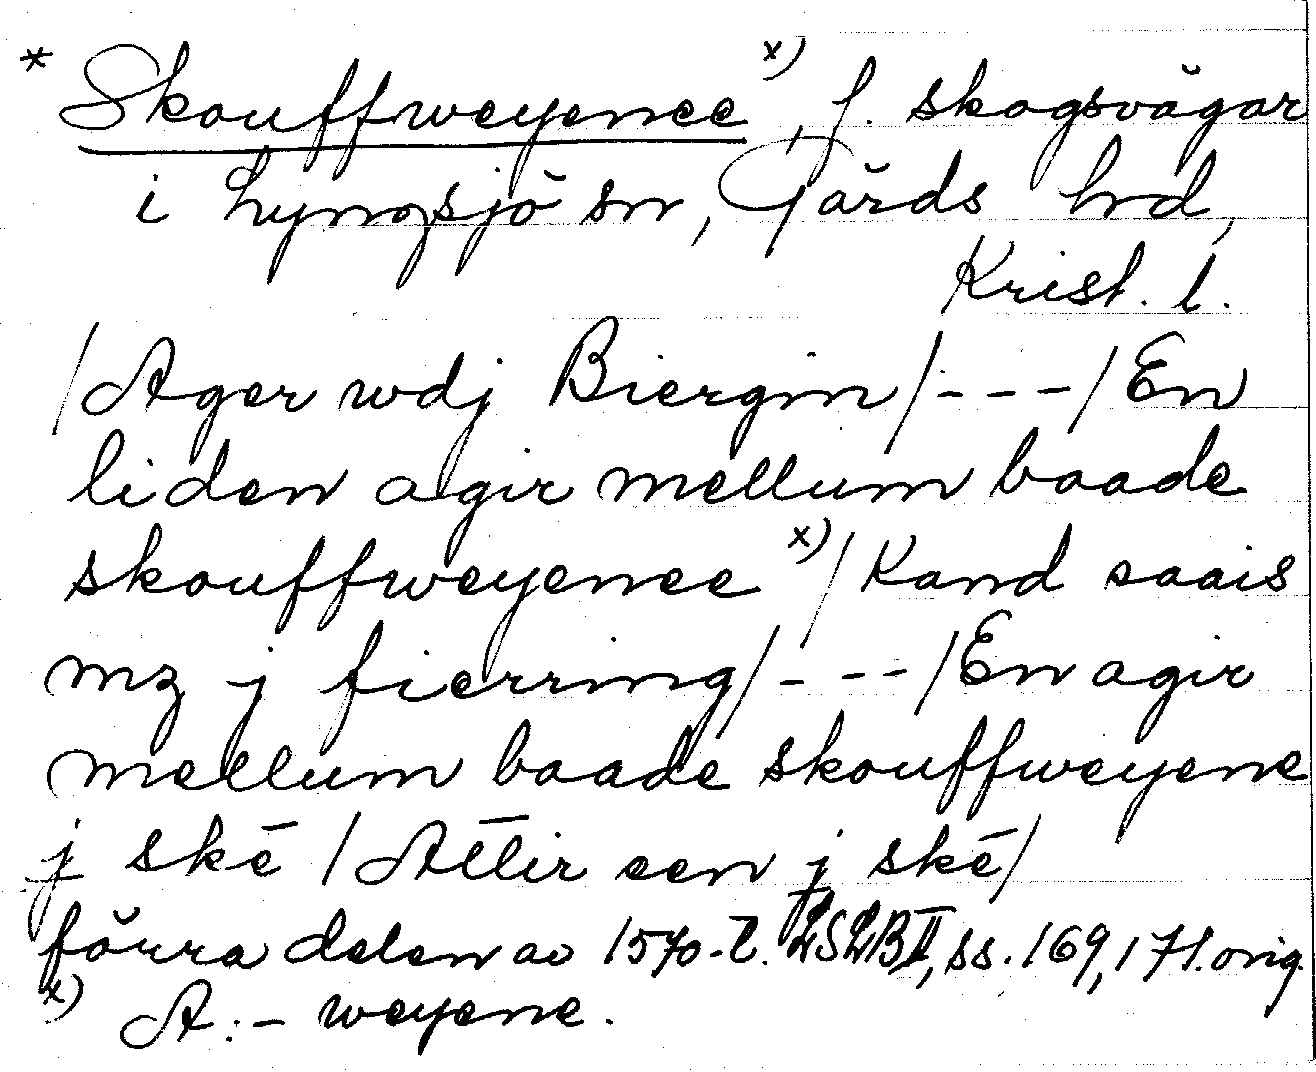 * Skouffweyenee x), f. skogsvägar
i Lyngsjö sn, Gärds hrd,
Krist. l.
/Ager wdj Biergin/---/En
liden agir mellum baade
skouffweyenee x)/Kand saais
mz j fierring/---/En agir
mellum baade skouffweyene
j skē /Ātlir een j skē/
förra delen av 1570-t. LSLB II, ss. 169, 171. orig.
x) A: - weyene.